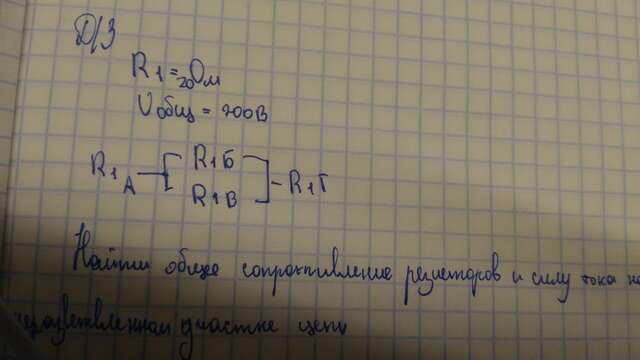 Д/З
R1=20Ом
Uобщ = 200В
R1А
R1Б
R1В
R1Г
Найти общее сопротивление резисторов и силу тока на
неразветвленном участке цепи